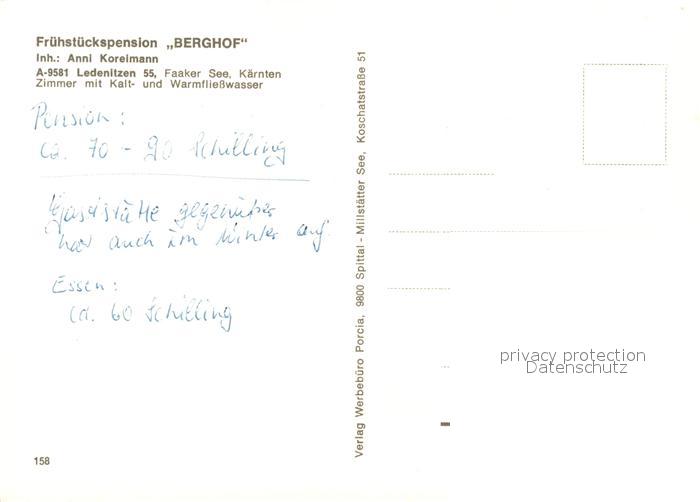 Frühstückspension „BERGHOF“
Inh.: Anni Korelmann
A-9581 Ledenitzen 55, Faaker See, Kärnten
Zimmer mit Kalt- und Warmfließwasser
Pension:
ca. 70 - 90 Schilling
Gaststätte gegenüber
hat auch im Winter auf.
Essen:
ca. 60 Schilling
158
Verlag Werbebüro Porcia, 9800 Spittal - Millstätter See, Koschatstraße 51
privacy protection
Datenschutz